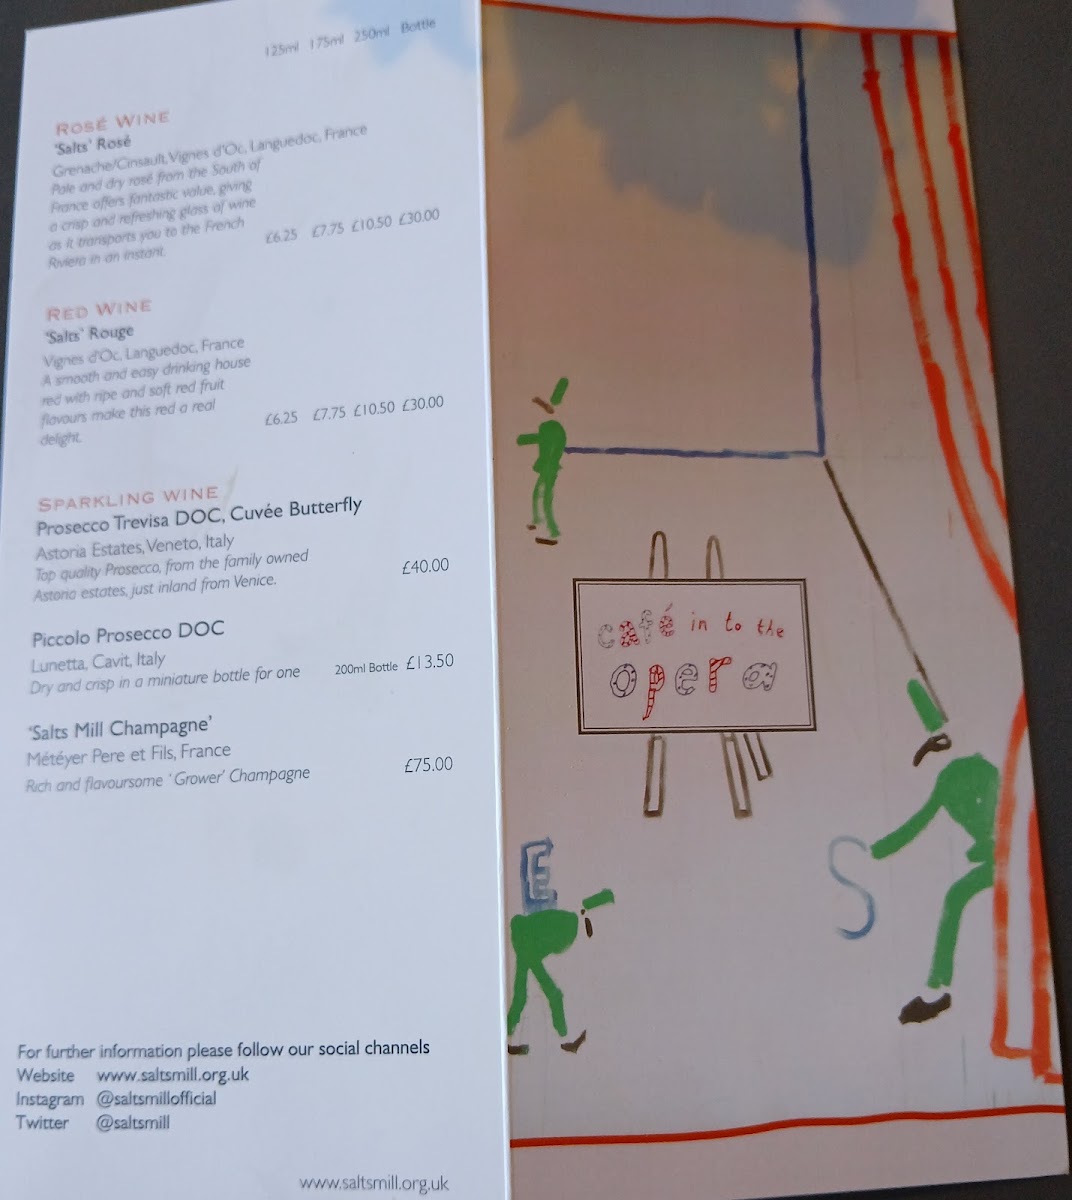 125ml 175ml 250ml Bottle
ROSÉ WINE
'Salts' Rosé
Grenache/Cinsault, Vignes d'Oc, Languedoc, France
Pale and dry rosé from the South of
France offers fantastic value, giving
a crisp and refreshing glass of wine
as it transports you to the French
Riviera in an instant.
£6.25 £7.75 £10.50 £30.00
RED WINE
'Salts' Rouge
Vignes d'Oc, Languedoc, France
A smooth and easy drinking house
red with ripe and soft red fruit
flavours make this red a real
delight.
£6.25 £7.75 £10.50 £30.00
SPARKLING WINE
Prosecco Trevisa DOC, Cuvée Butterfly
Astoria Estates, Veneto, Italy
Top quality Prosecco, from the family owned
Astoria estates, just inland from Venice.
£40.00
Piccolo Prosecco DOC
Lunetta, Cavit, Italy
Dry and crisp in a miniature bottle for one
200ml Bottle £13.50
'Salts Mill Champagne'
Météyer Pere et Fils, France
Rich and flavoursome 'Grower' Champagne
£75.00
For further information please follow our social channels
Website www.saltsmill.org.uk
Instagram @saltsmillofficial
Twitter @saltsmill
www.saltsmill.org.uk
café in to the
opera
E
S